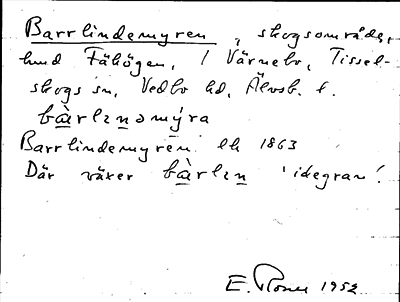 Barrlindemyren, skogsområde,
hmd Fähögen, 1 Värnebo, Tissel-
skogs sn, Vedbo hd, Älvsb. l.
bàrlınəmýra
Barrlindemyren ek 1863
Där växer bàrlın 'idegran'.
E. 1952